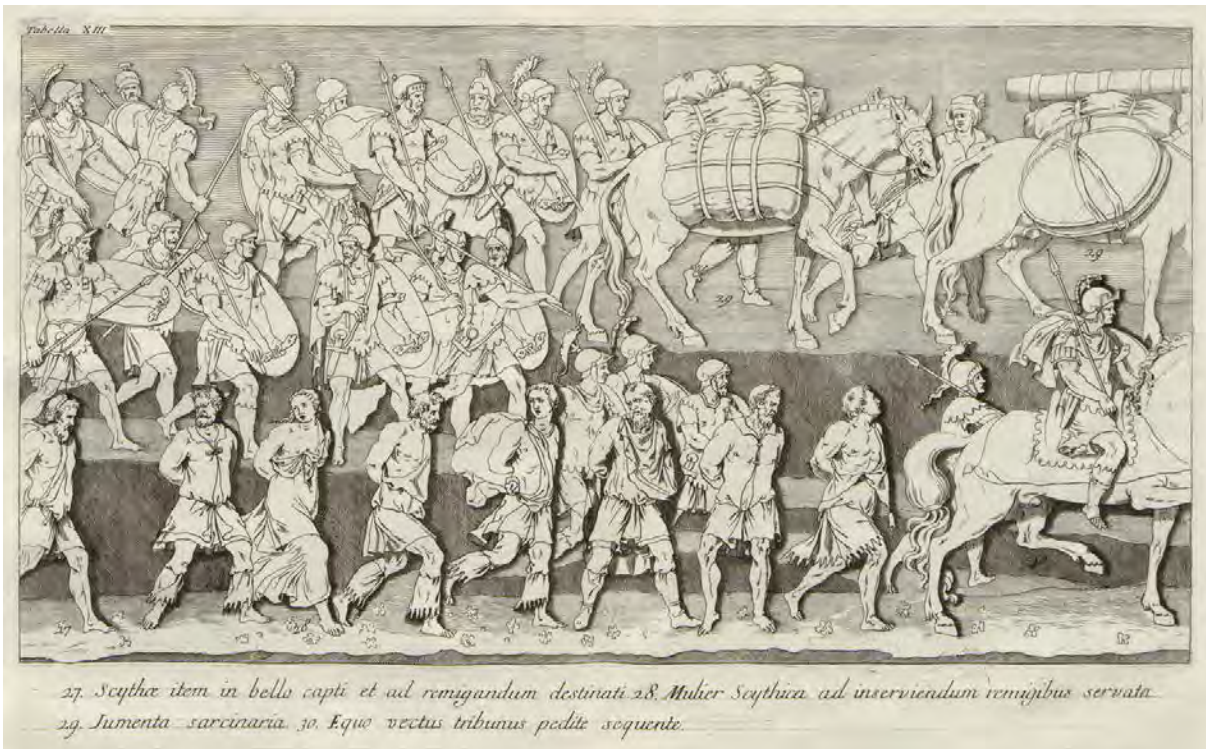 Tabella XIII
29
29
27
28
27. Scythæ item in bello capti et ad remigandum destinati 28. Mulier Scythica ad inserviendum remigibus servata
29. Jumenta sarcinaria. 30. Equo vectus tribunus pedite sequente.